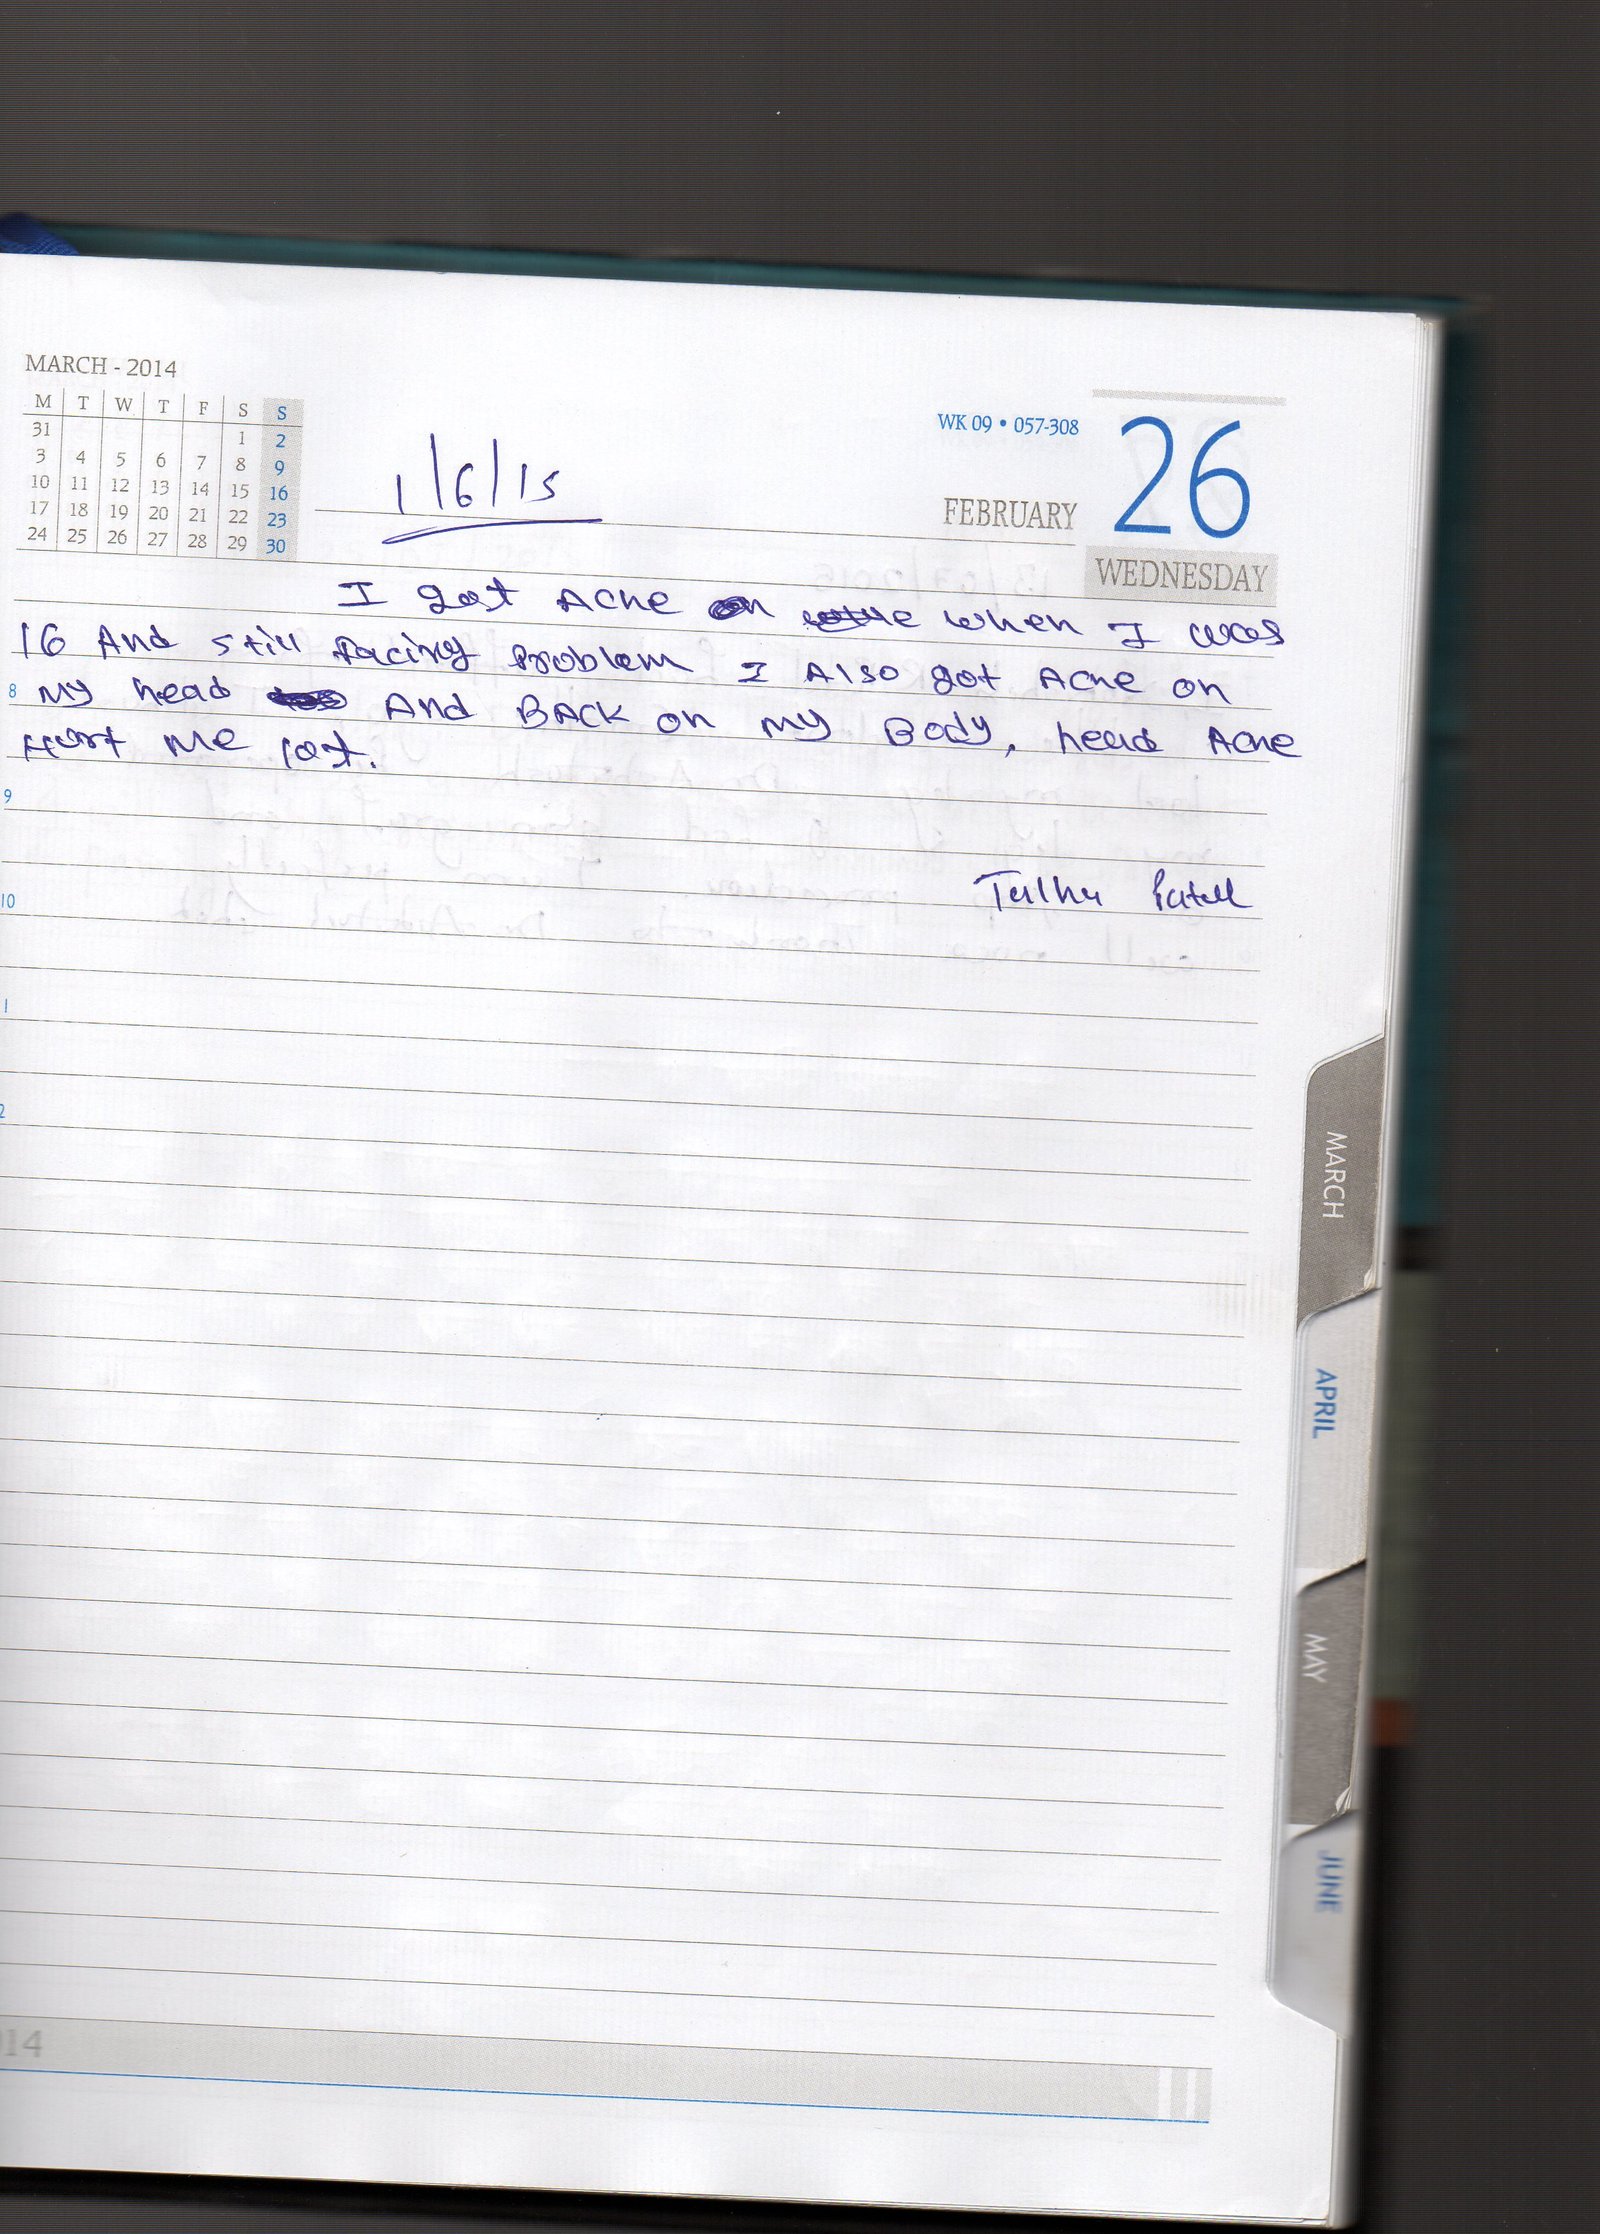 MARCH - 2014
M T W T F S S
31 1 2
3 4 5 6 7 8 9
10 11 12 13 14 15 16
17 18 19 20 21 22 23
24 25 26 27 28 29 30
1/6/15
WK 09 • 057-308
FEBRUARY
26
WEDNESDAY
I got Acne when I was
16 And still facing Problem I Also got Acne on
8 My head And BACK on my Body, head Acne
Hurt Me lot.
9
Talha Patel
10
1
2
MARCH
APRIL
MAY
JUNE
14